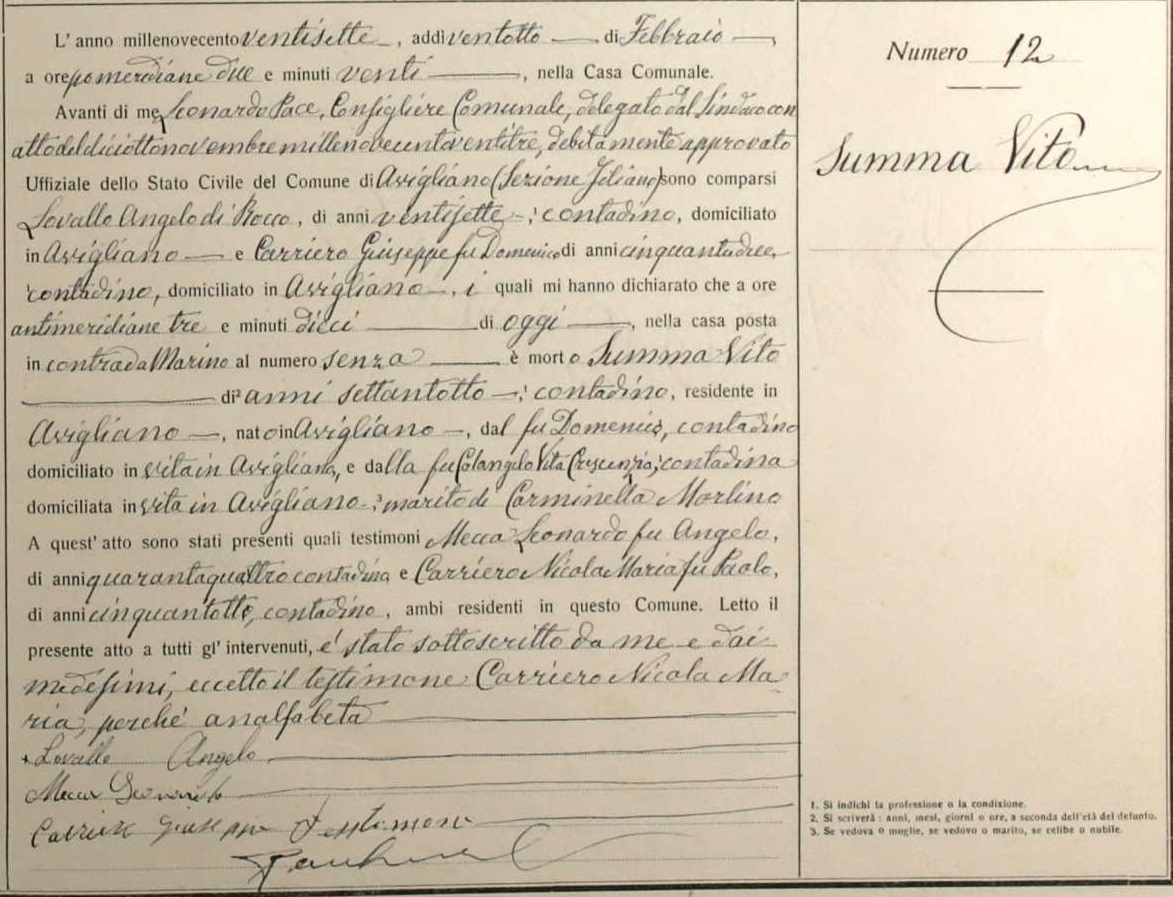 L'anno millenovecento ventisette, addì ventotto di Febbraio,
a ore pomeridiane due e minuti venti, nella Casa Comunale.
Avanti di me Leonardo Pace, Consigliere Comunale, delegato dal Sindaco con
atto del diciotto novembre millenovecentoventitre, debitamente approvato
Uffiziale dello Stato Civile del Comune di Avigliano (Sezione Filiano) sono comparsi
Lovallo Angelo di Rocco, di anni ventisette, contadino, domiciliato
in Avigliano e Carriero Giuseppe fu Domenico di anni cinquantadue,
contadino, domiciliato in Avigliano, i quali mi hanno dichiarato che a ore
antimeridiane tre e minuti dieci di oggi, nella casa posta
in contrada Marino al numero senza è morto Summa Vito
di anni settantotto, contadino, residente in
Avigliano, nato in Avigliano, dal fu Domenico, contadino
domiciliato in vita in Avigliano, e dalla fu Colangelo Vita Crescenzia, contadina
domiciliata in vita in Avigliano, marito di Carminella Morlino
A quest'atto sono stati presenti quali testimoni Mecca Leonardo fu Angelo,
di anni quarantaquattro contadino e Carriero Nicola Maria fu Paolo,
di anni cinquantotto, contadino, ambi residenti in questo Comune. Letto il
presente atto a tutti gl'intervenuti, è stato sottoscritto da me e dai
medesimi, eccetto il testimone Carriero Nicola Ma-
ria, perché analfabeta
Lovallo Angelo
Mecca Leonardo
Carriero Giuseppe testimone
Numero 12
Summa Vito
1. Si indichi la professione o la condizione.
2. Si scriverà: anni, mesi, giorni o ore, a seconda dell'età del defunto.
3. Se vedova o moglie, se vedovo o marito, se celibe o nubile.